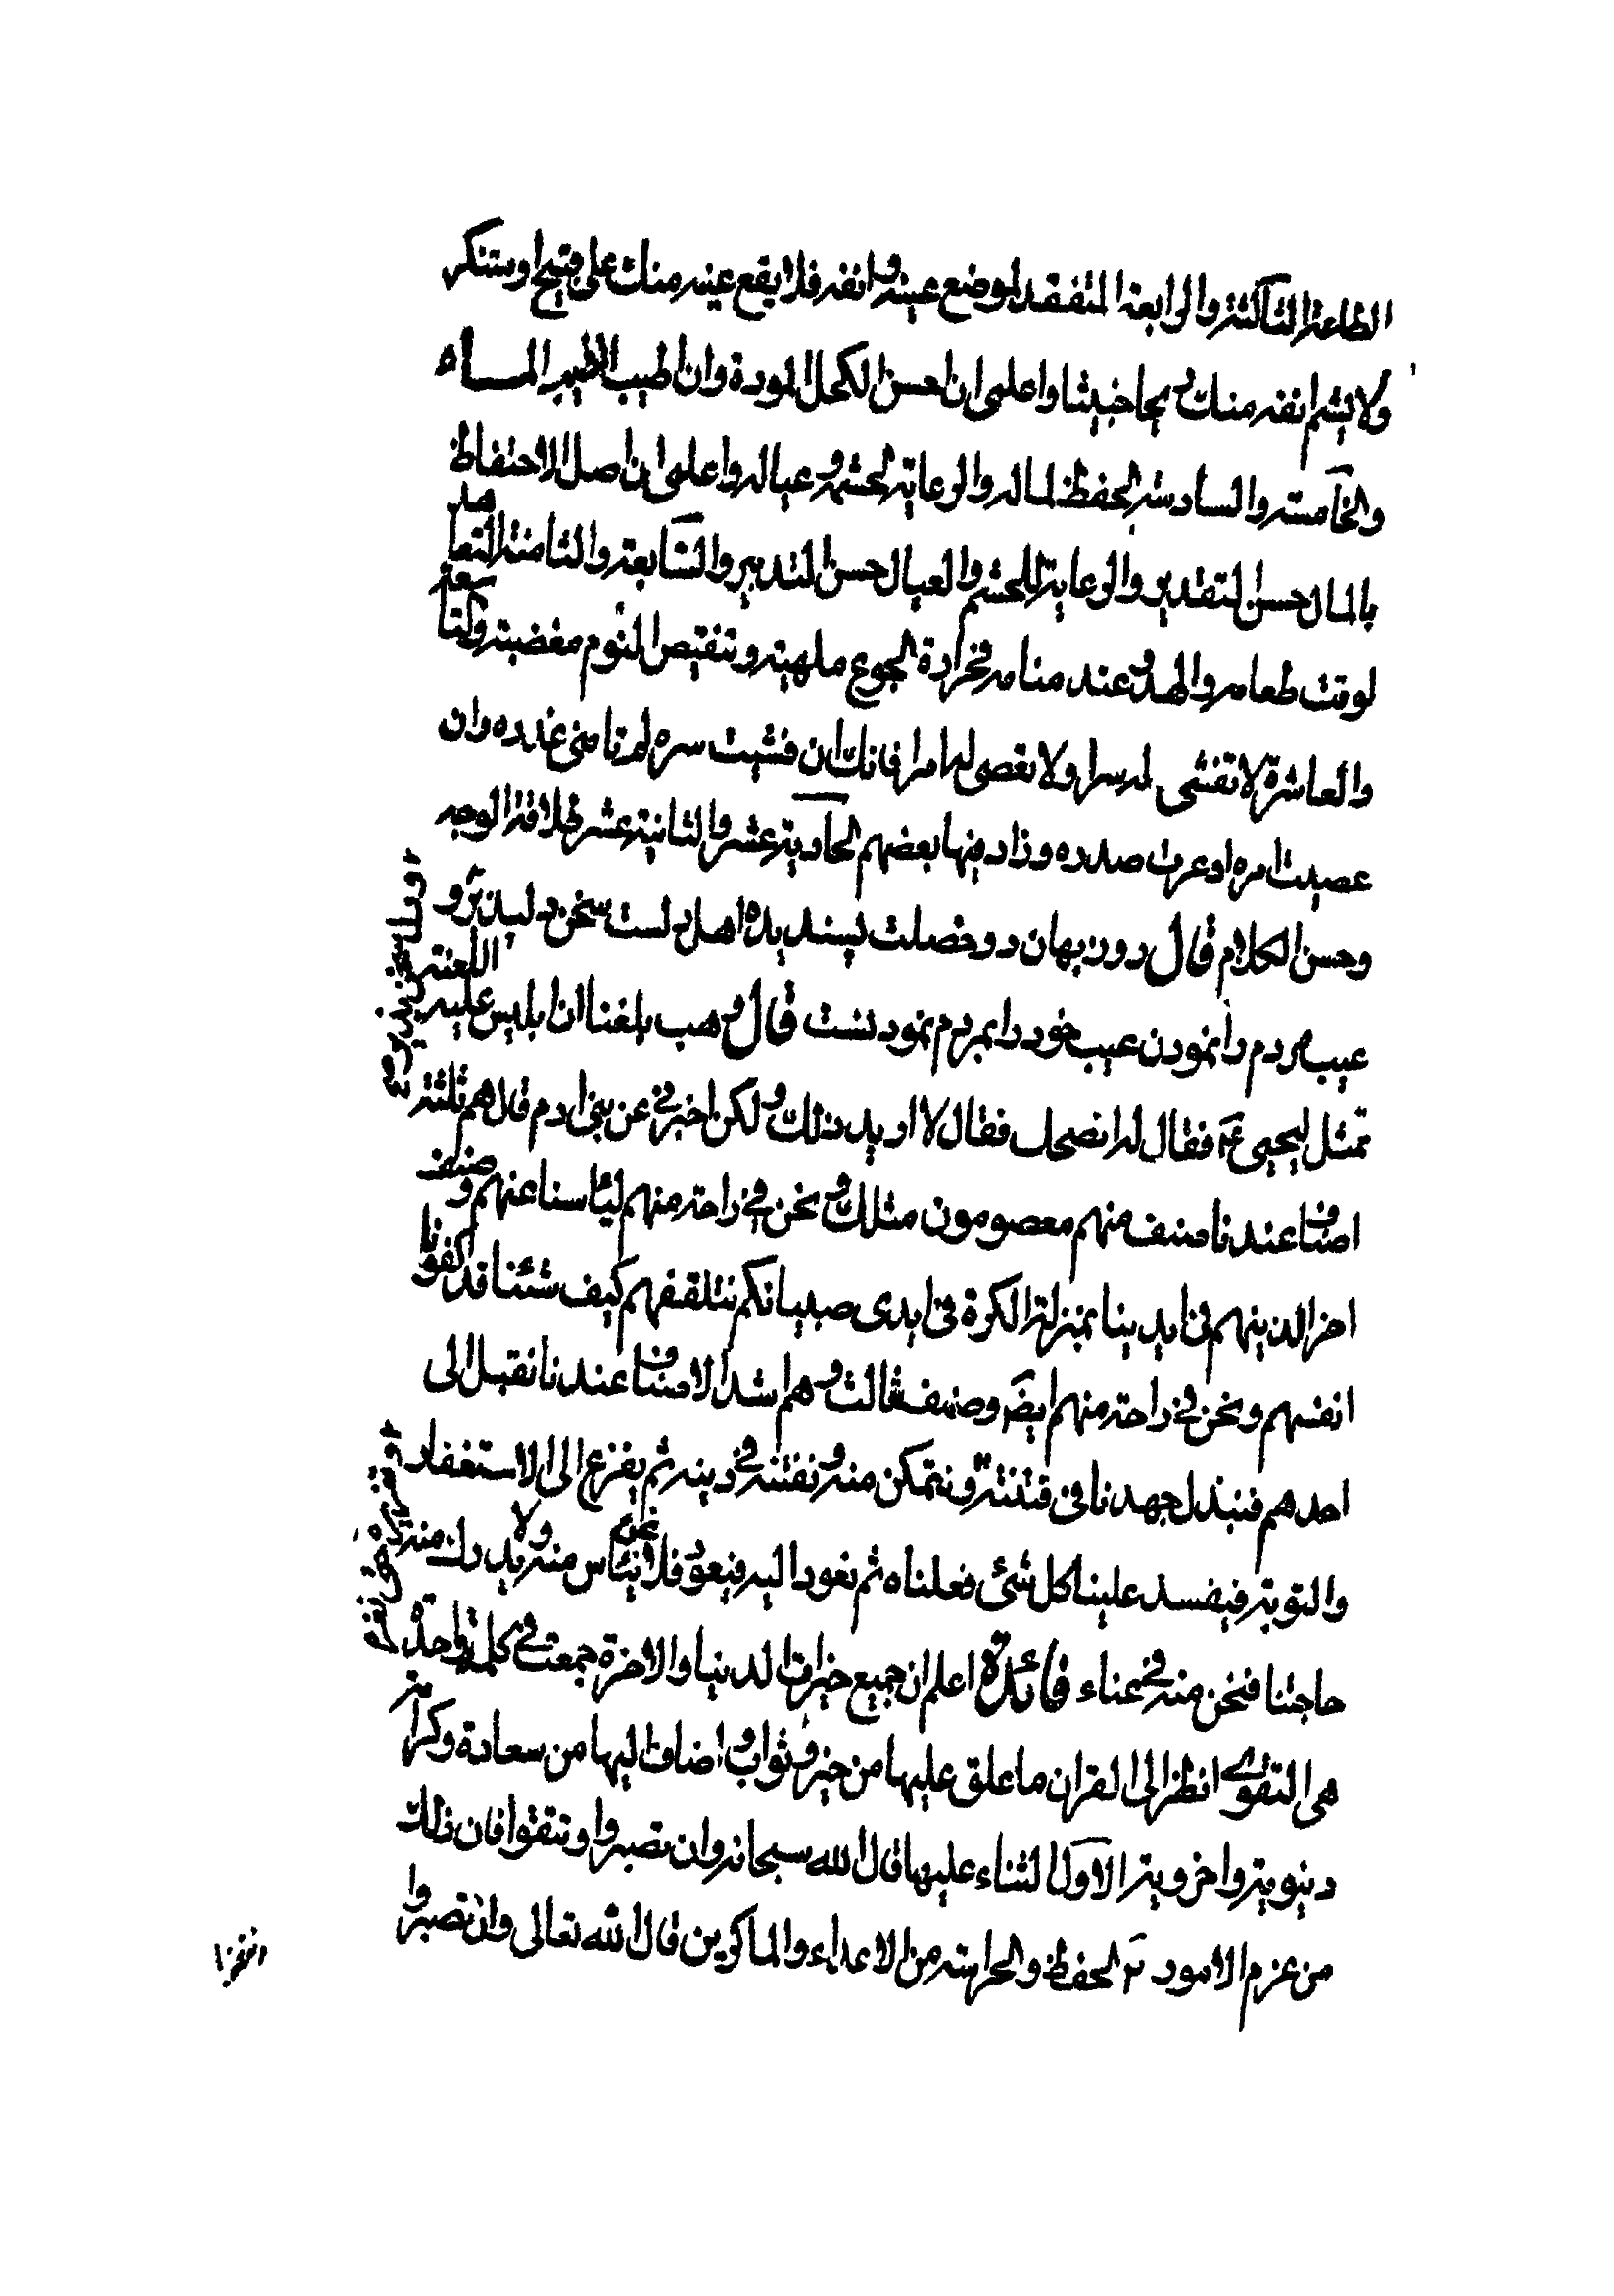 الطاعة الثالثة والرابعة المتفقد لموضع عينه وانفه فلا يقع عينه منك على قبيح او يستنكر
ولا يشم انفه منك ريحا خبيثا واعلمى ان احسن الكحل المودة وان اطيب الطيب المساء
والخامسة والسادسة الحفظ لماله والرعاية لحشمه وعياله واعلمى ان اصل الاحتفاظ
بالمال حسن التقدير والرعاية للحشم والعيال حسن التدبير والسابعة والثامنة التعاهد
لوقت طعامه والهدو عند منامه فحرارة الجوع ملهبة وتنقيص النوم مغضبة والتاسعة
والعاشرة لا تفشى له سرا ولا تعصى له امرا فانك ان فشيت سره لم تا منى غدره وان
عصيت امره اوغرت صدره وزاد فيها بعضهم الحادية عشر والثانية عشر طلاقة الوجه
وحسن الكلام قال دو زبهان دو خصلت پسنديده اهل دلست سخن دلپذير و
عيب مردم را نمودن عيب خود را بمردم نمود نست قال وهب بلغنا ان ابليس عليه اللعنة
تمثل ليحيى ع فقال له انصحك فقال لا اريد ذلك ولكن اخبرنى عن بنى ادم قال هم ثلثة
اصناف عندنا صنف منهم معصومون مثلك ونحن فى راحة منهم ليئاسنا عنهم وصنف
اخر الذينهم فى ايدينا بمنزلة الكرة فى ايدى صبيانكم نتلقفهم كيف شئنا قد كفونا
انفسهم ونحن فى راحة منهم ايضا وصنف ثالث وهم اشد الاصناف عندنا نقبل الى
احدهم فنبذل جهدنا فى فتنته ونتمكن منه ونفتنه فى دينه ثم يفزع الى الاستغفار
والتوبة فيفسد علينا كل شئ فعلناه ثم نعود اليه فيعود فلا نحن نيئاس منه ولا يدرك منه
حاجتنا فنحن منه فى عناء فائدة اعلم ان جميع خيرات الدنيا والاخرة جمعت فى كلمة واحدة
هى التقوى انظر الى القران ما علق عليها من خير وثواب واضاف اليها من سعادة وكرامة
دنيوية واخروية الاول الثناء عليها قال الله سبحانه وان تصبروا وتتقوا فان ذلك
من عزم الامور ٢ الحفظ والحراسة من الاعداء والماكرين قال الله تعالى وان تصبروا